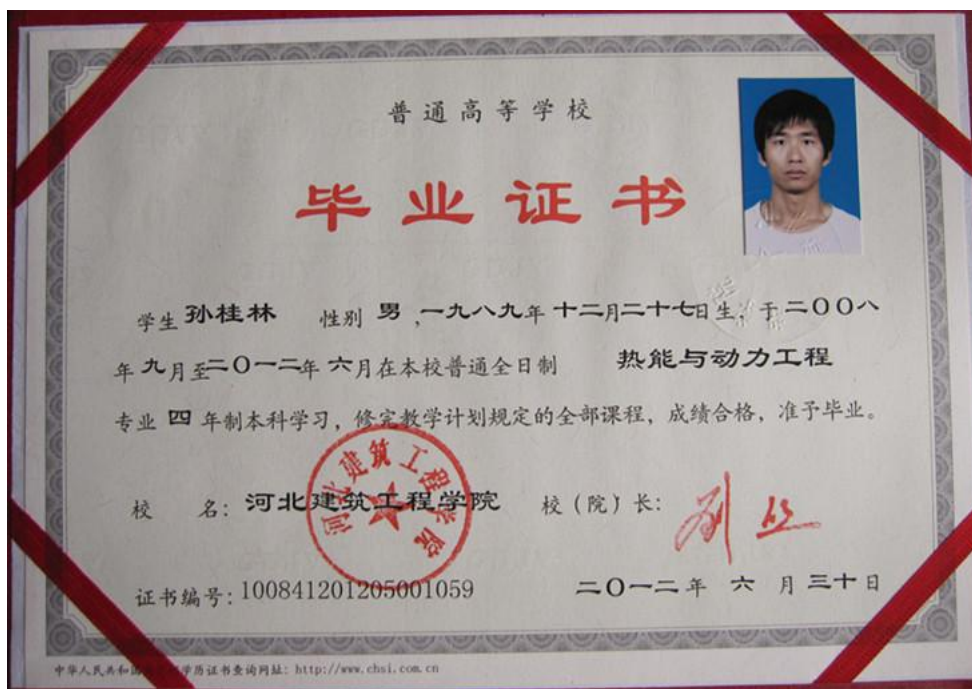 普通高等学校
毕业证书
学生 孙桂林 性别 男 ,一九八九年 十二月二十七日生, 于二〇〇八
年 九月至二〇一二年 六月在本校普通全日制 热能与动力工程
专业 四 年制本科学习, 修完教学计划规定的全部课程, 成绩合格, 准予毕业。
校 名: 河北建筑工程学院 校(院)长:
河北建筑工程学院
证书编号: 100841201205001059 二〇一二年 六 月 三十日
中华人民共和国 学历证书查询网址: http://www.chsi.com.cn